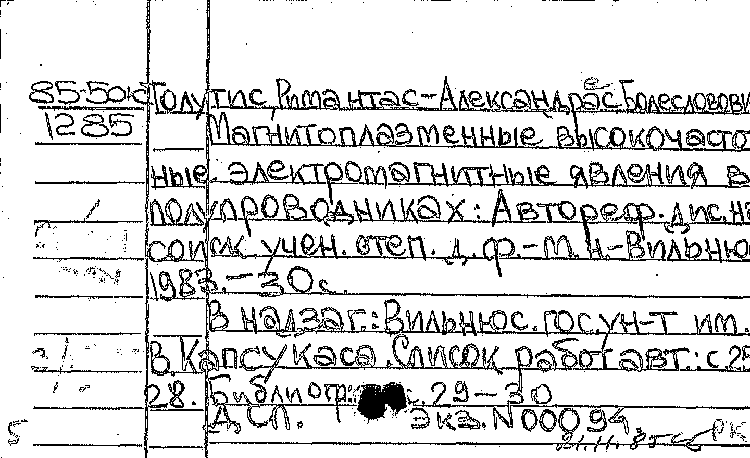 85-50к Голутис, Римантас-Александрас Болесловови
1285 Магнитоплазменные высокочастот
ные электромагнитные явления в
полупроводниках: Автореф. дис. на
соиск. учен. степ. д. ф.-м. н.-Вильнюс
1983.-30с.
В надзаг.: Вильнюс. гос. ун-т им.
В. Капсукаса. Список работ авт.: с. 25
28. Библиогр.: с. 29-30
ДСП. Экз. N 00094
5 РК